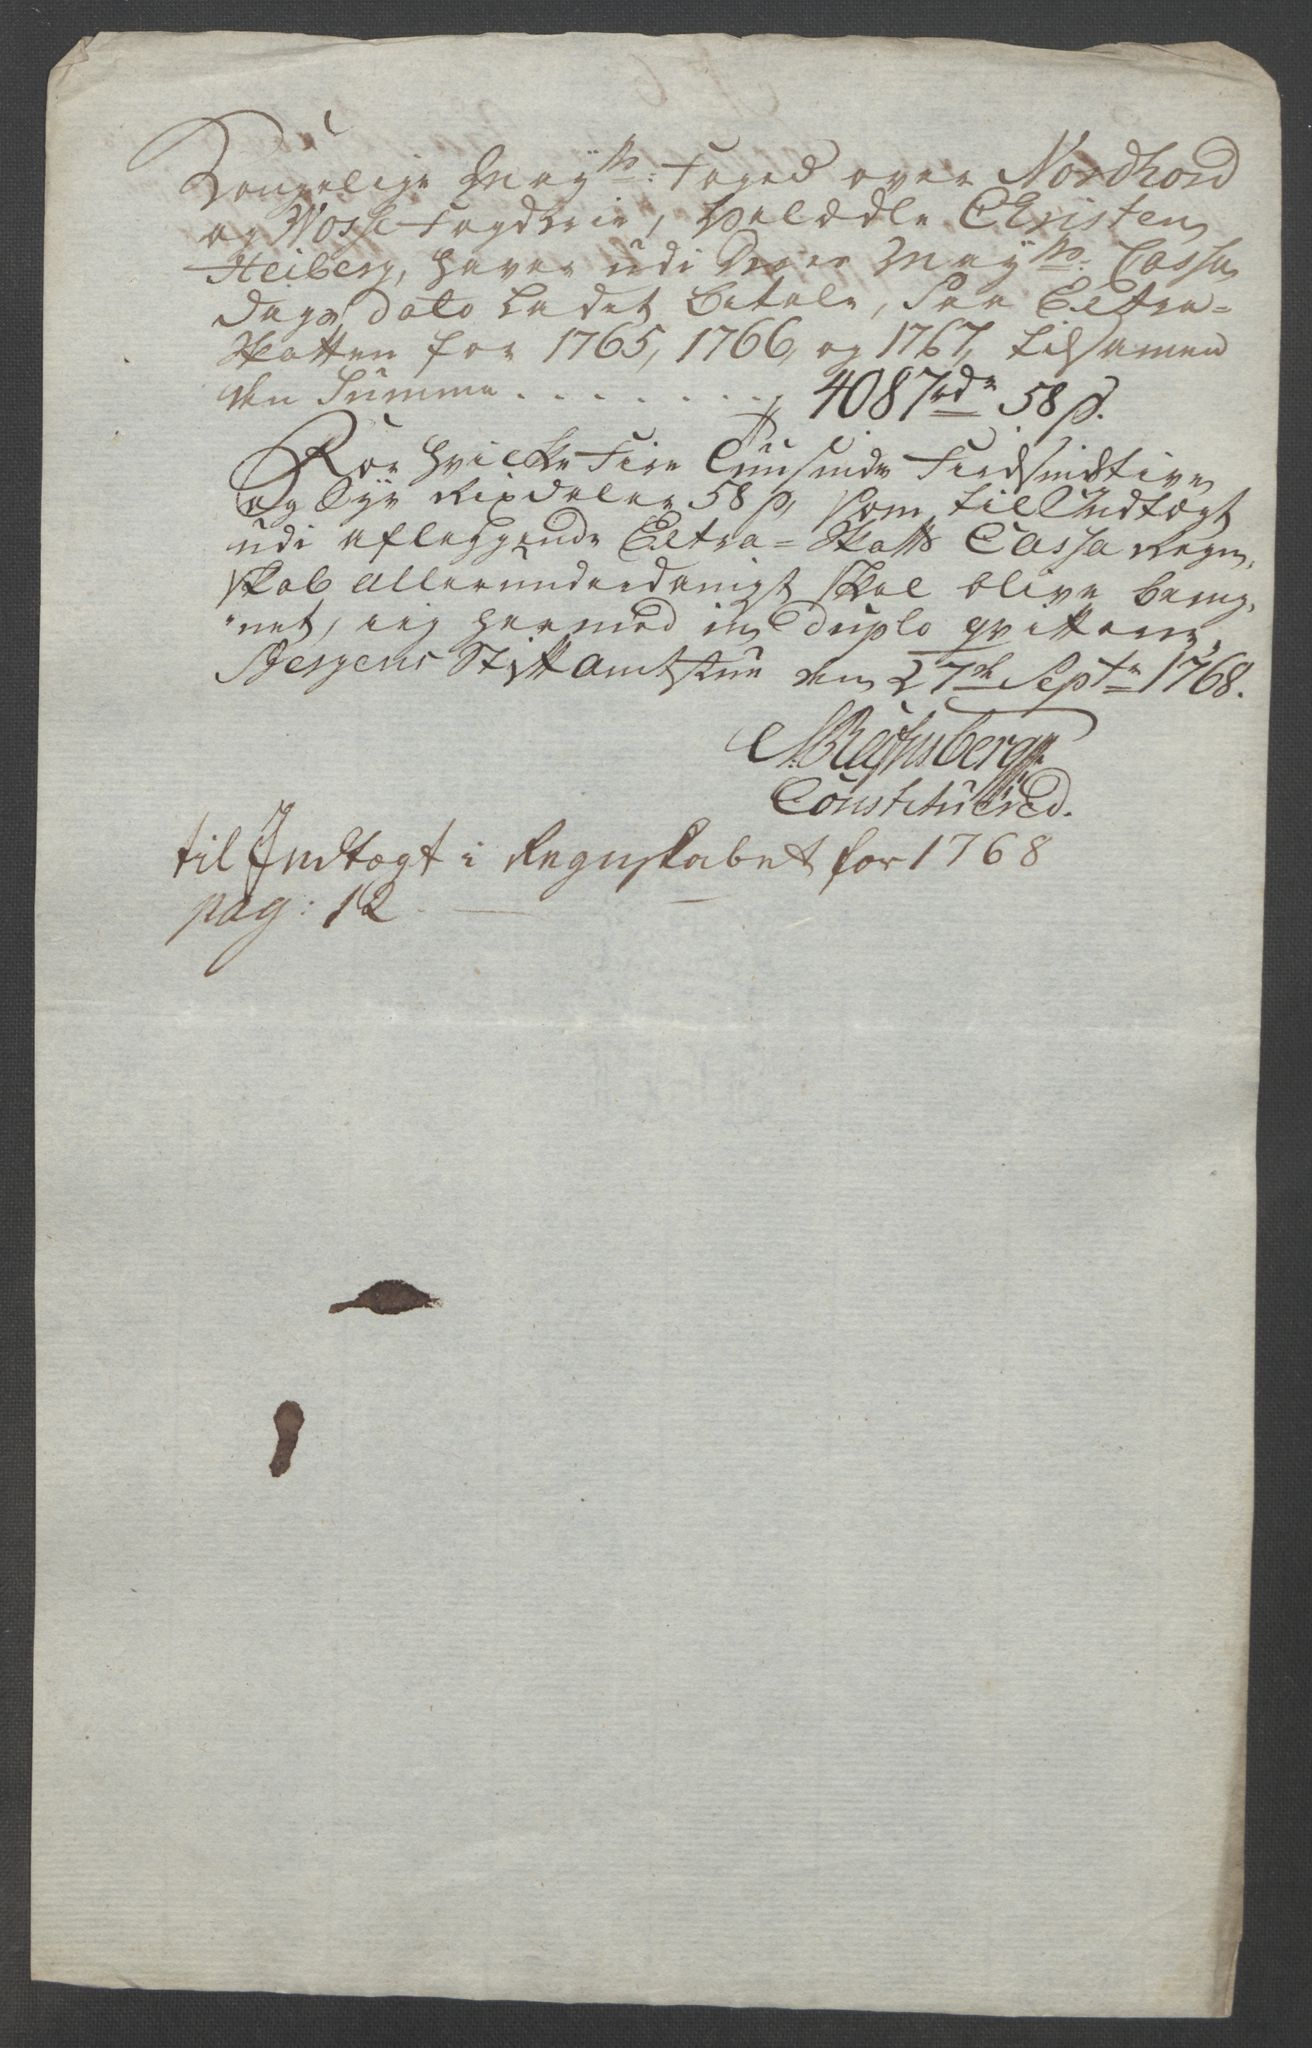 Kongelige Mayts: Foged over Nordhord
og Vosse Fogderie, Velædle Christen
Heiberg, haver udi Deres Mayts: Cassa
Dags Dato ladet betale, paa Extra-
Skatten for 1765, 1766, og 1767, tilsamen
den Summa . . . . . . . . 4087 rdr 58 s.
For hvilke Fire Tusinde Firdsindtive
og Syv Rixdaler 58 s, som til Indtægt
udi aflæggende Extra-Skatts Cassa Regn-
skab allerunderdanigst skal blive bereg-
net, ieg hermed in Duplo qvitterer,
Bergens Stiftamtstue den 27de Septr 1768.
Constituered.
til Indtægt i Regnskabet for 1768
pag: 12